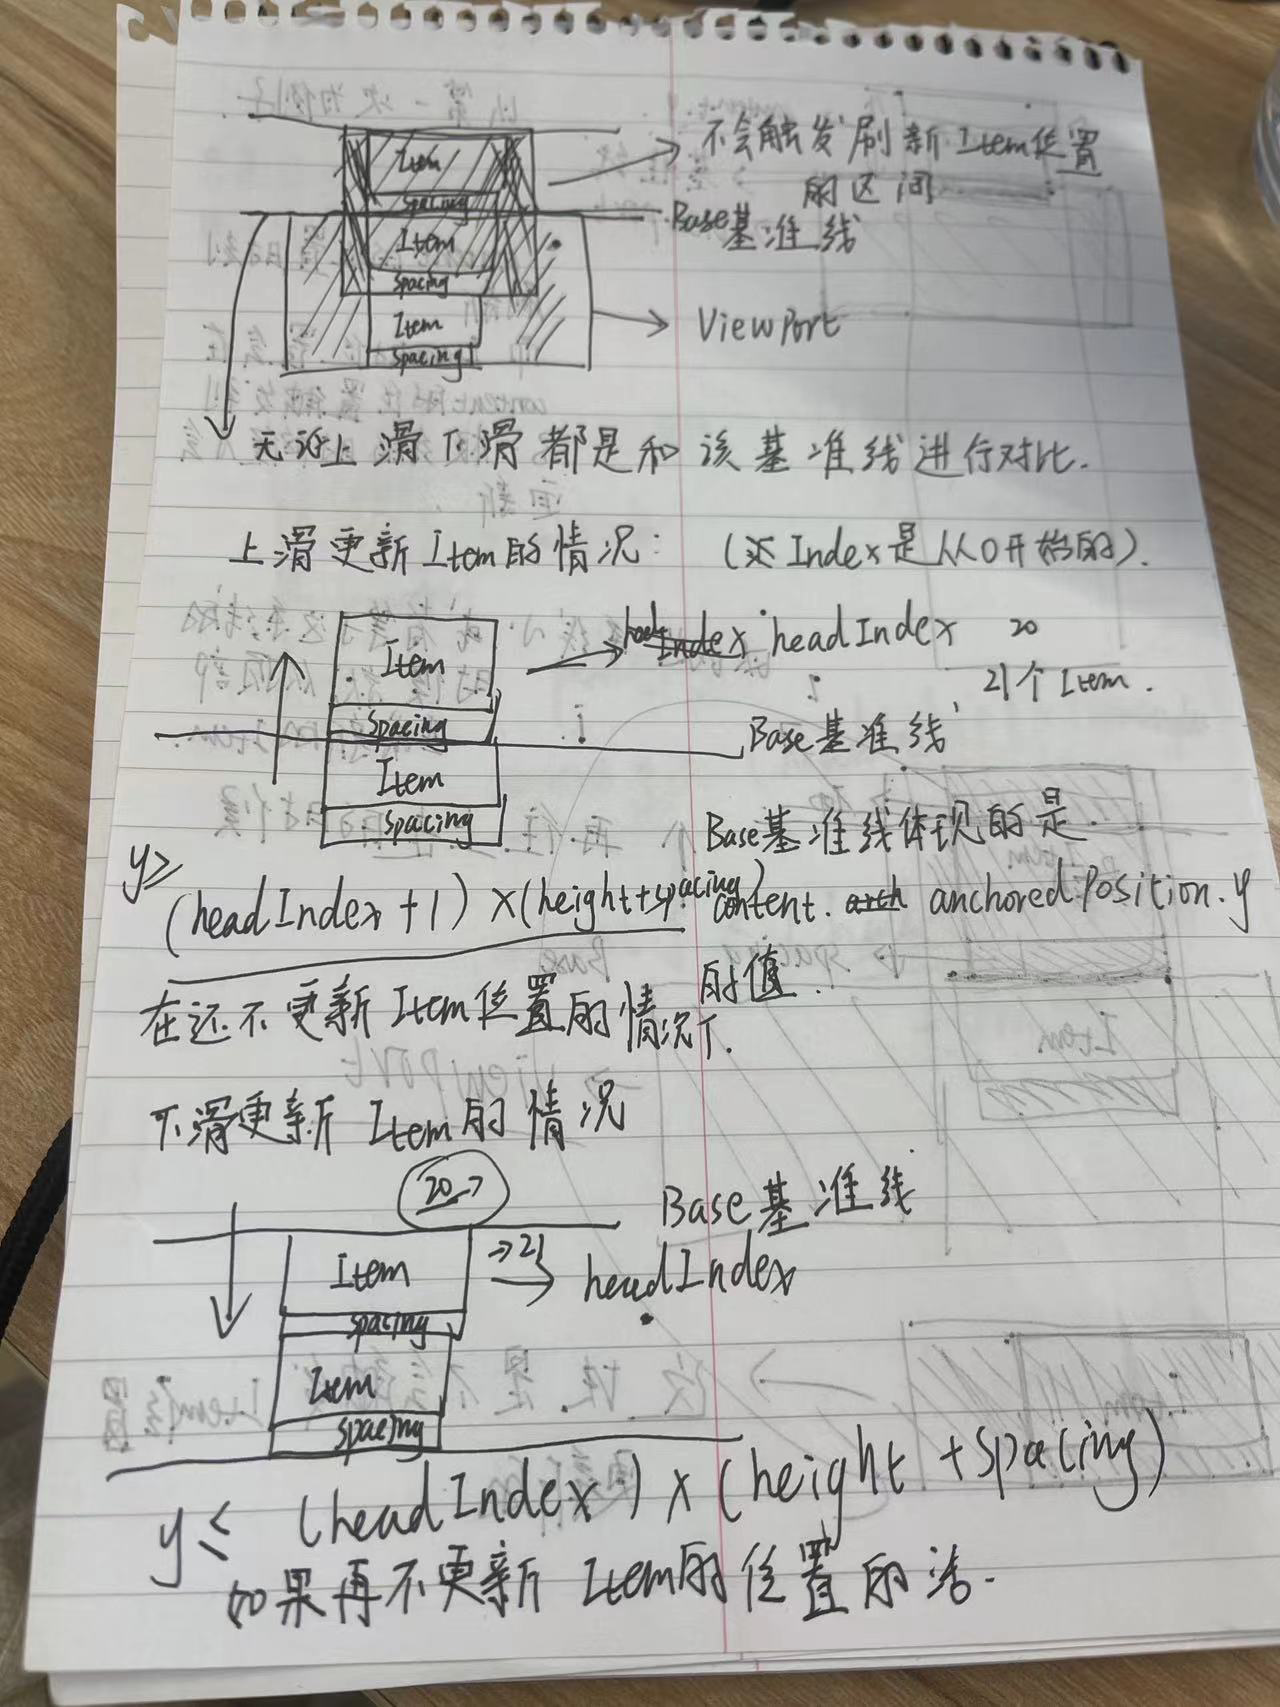 Item
spacing
Item
spacing
Item
spacing
不会触发刷新Item位置
的区间
Base基准线
ViewPort
无论上滑下滑都是和该基准线进行对比.
上滑更新Item的情况: (Index是从0开始的).
Item
spacing
Item
spacing
headIndex 20
21个Item.
Base基准线
Base基准线体现的是
content. anchoredPosition.y
的值.
y≥
(headIndex+1)×(height+spacing)
在还不更新Item位置的情况下.
下滑更新Item的情况
20→
Base基准线
→21
headIndex
Item
spacing
Item
spacing
y≤ (headIndex)×(height+spacing)
如果再不更新Item的位置的话.